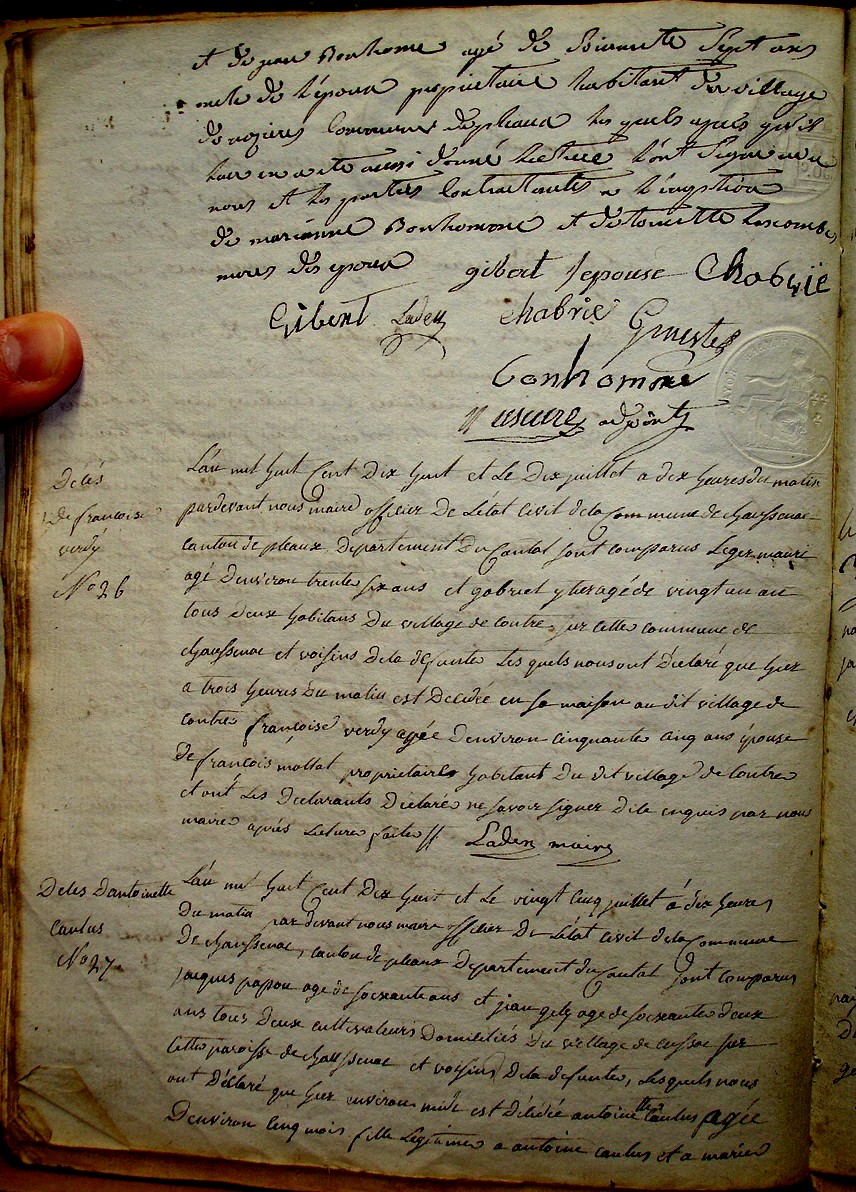 et de jean Bonhome agé de Soixante Sept ans
oncle de l'époux propriétaire habitant du village
de nozieres Commune de pleaux les quels apres qu'il
leur en a été aussi donné lecture l'ont signé avec
nous et les parties Contractantes a l'exception
de marianne Bonhomme et de toinette Lascombes
meres des epoux gibert l'epouse Chabrie
Gibert Laden chabrie Ginestes
bonhomme
adjoint
Décés
De francoise
verdy
No 26
L'an mil huit Cent Dix huit et Le Dix juillet a dix heures du matin
pardevant nous maire officier De L'état Civil de la Commune de chaussenac
canton de pleaux, Departement Du Cantal sont comparus Leger mauri
agé Denviron trente six ans et gabriel ytier agé de vingt un an
tous Deux habitans Du village de Contre sur cette commune de
chaussenac et voisins De la défunte Les quels nous ont Déclaré que hier
a trois heures Du matin est Décédée en sa maison au dit village de
contre françoise verdy agée Denviron cinquante cinq ans épouse
De francois mottat propriétaire habitant Du dit village de Contre
et ont Les Declarants Déclaré ne savoir signer De ce enquis par nous
maire après Lecture faite // Laden maire
Deces Dantoinette
Caulus
No 27
L'an mil huit Cent Dix huit et Le vingt cinq juillet á dix heures
Du matin par devant nous maire officier De L'état Civil de la Commune
De chaussenac, canton de pleaux Département du Cantal sont comparus
jacques papou age de soixante ans et jean gely age de soixante deux
ans tous Deux cultivateurs Domiciliés Du village de cussac sur
Cette paroisse de chaussenac et voisins De la defunte, Lesquels nous
ont Déclaré que hier environ midi est Décédée antoinette Caulus agée
Denviron cinq mois fille Legitime a antoine caulus et a marie